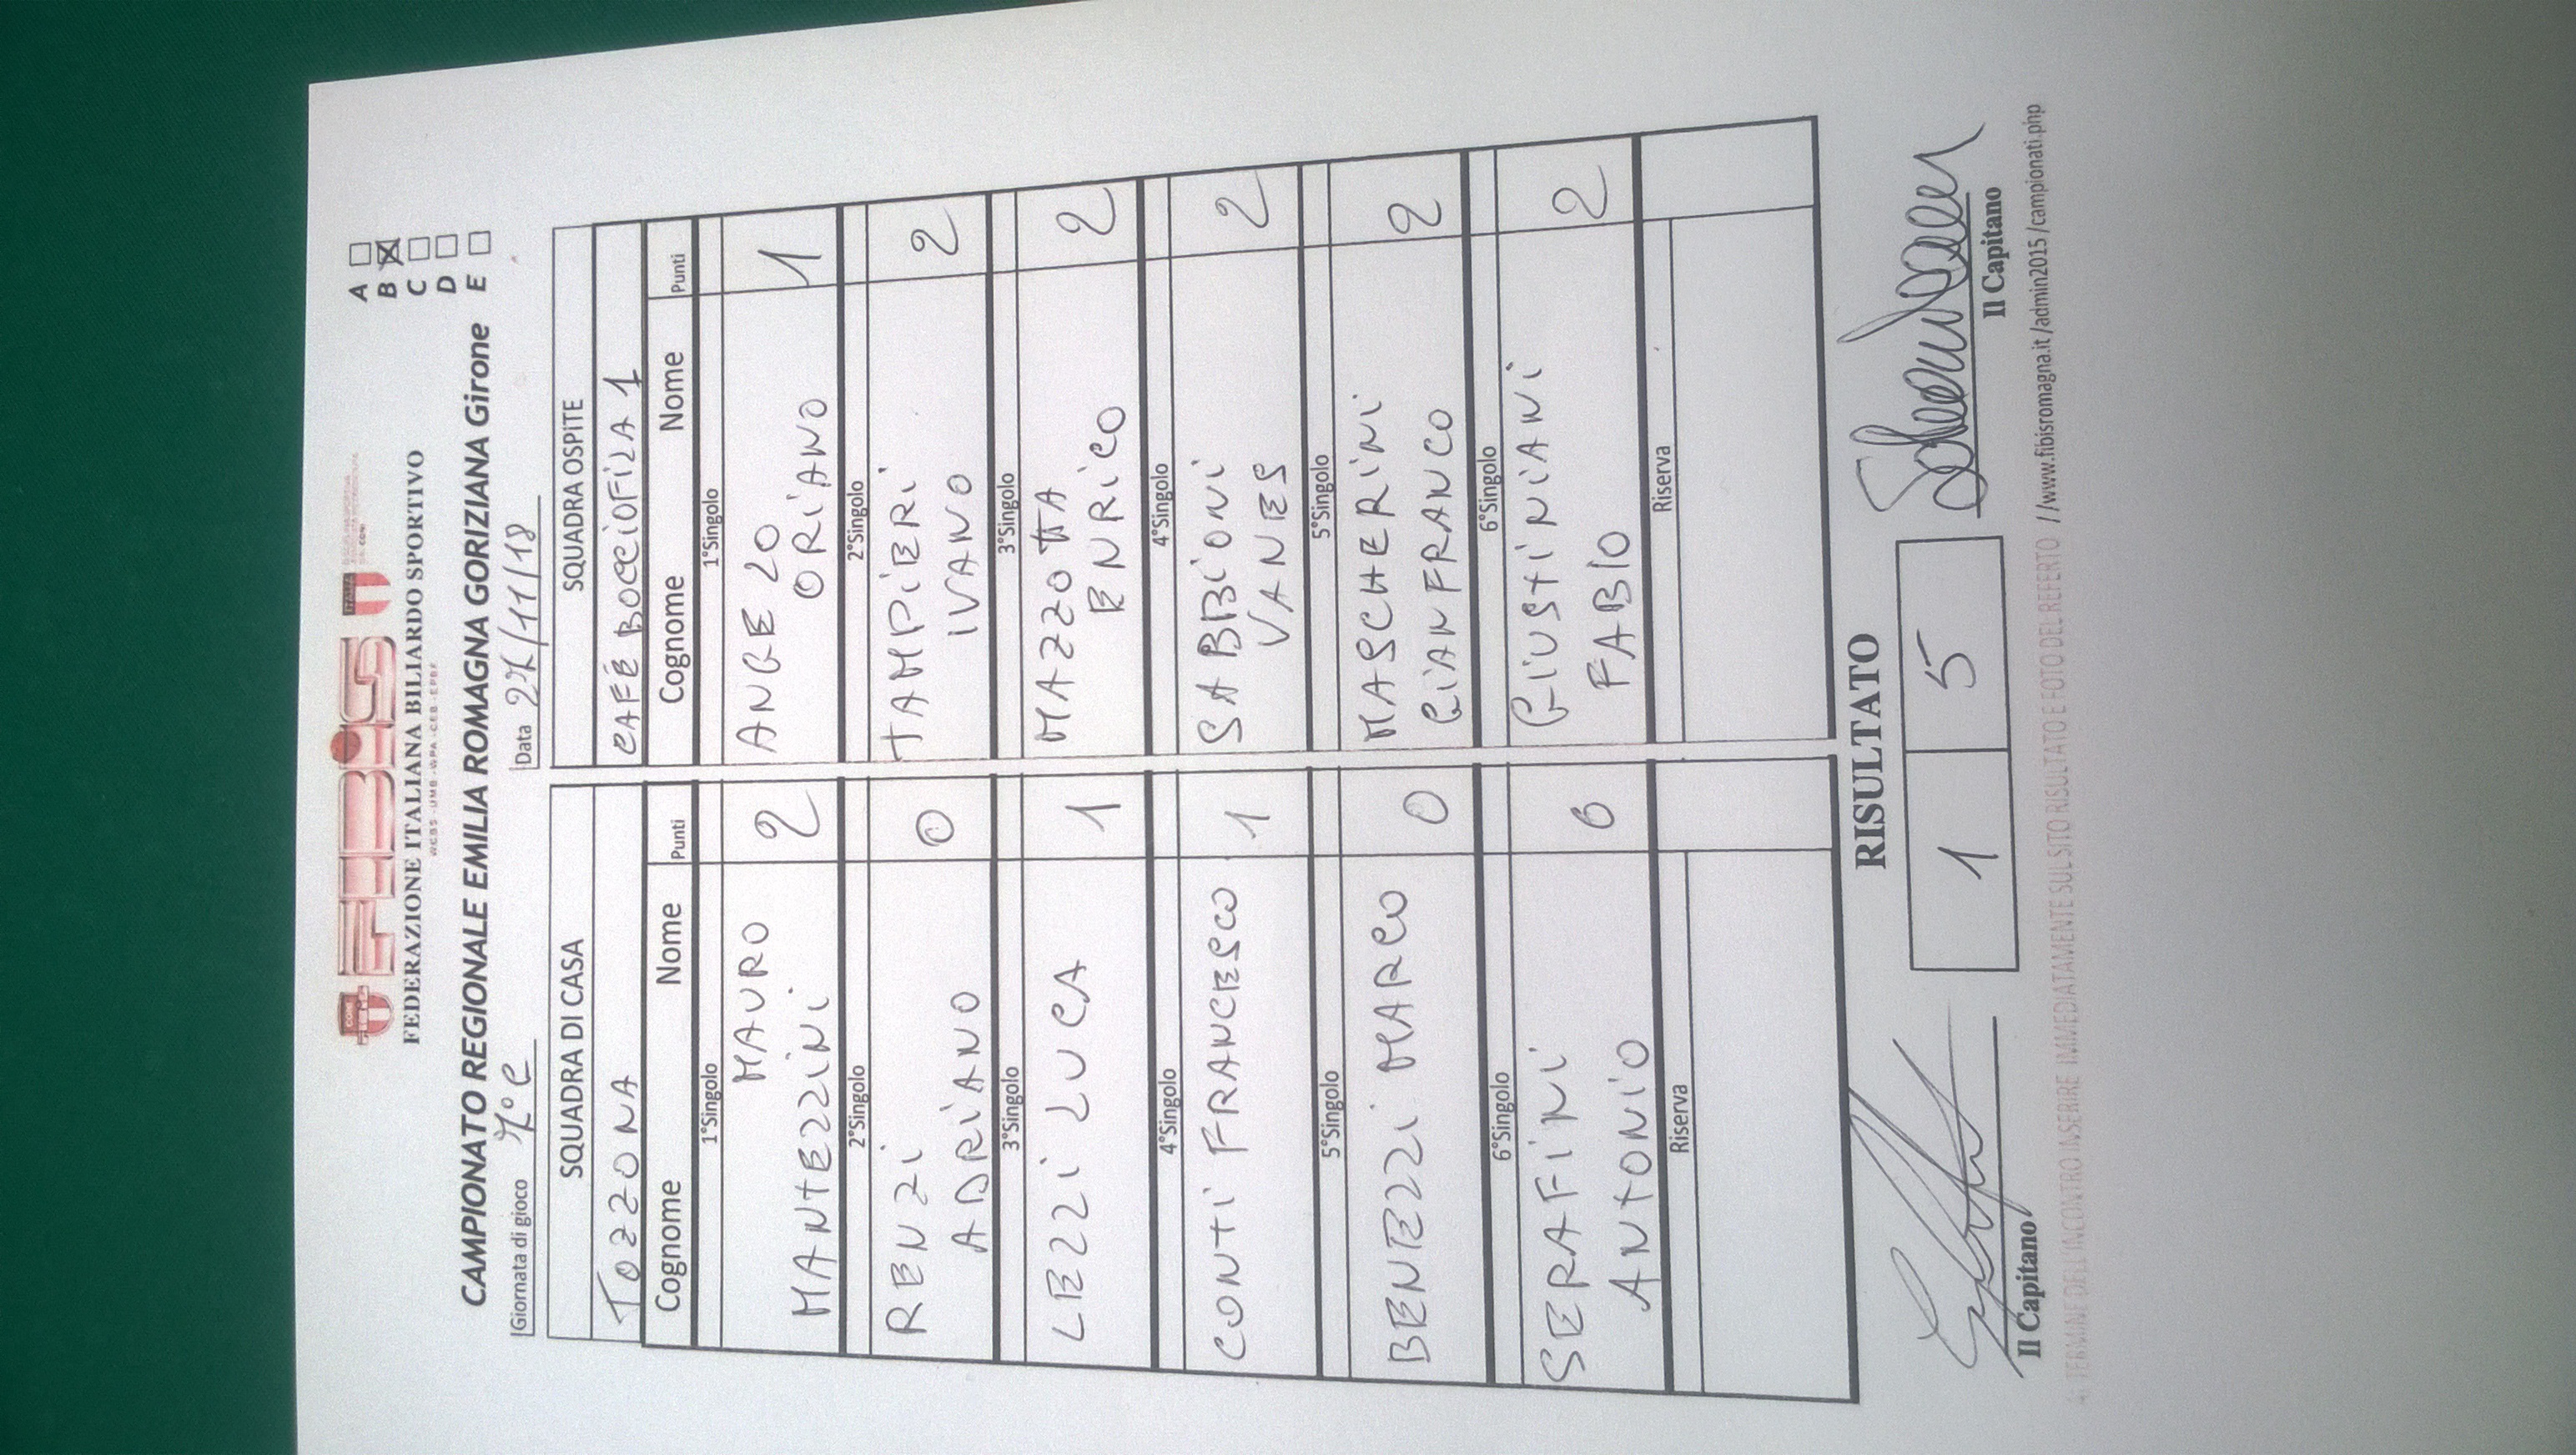 FIBiS
FEDERAZIONE ITALIANA BILIARDO SPORTIVO
WCBS - UMB - WPA - CEB - EPBF
CAMPIONATO REGIONALE EMILIA ROMAGNA GORIZIANA Girone
A
B
C
D
E
Giornata di gioco 7° C
Data 27/11/18
SQUADRA DI CASA
TOZZONA
Cognome Nome Punti
1°Singolo
MAURO
MANTEZZINI 2
2°Singolo
RENZI
ADRIANO 0
3°Singolo
LEZZI LUCA 1
4°Singolo
CONTI FRANCESCO 1
5°Singolo
BENEZZI MARCO 0
6°Singolo
SERAFINI
ANTONIO 0
Riserva
SQUADRA OSPITE
CAFÈ BOCCIOFILA 1
Cognome Nome Punti
1°Singolo
ANGELO
ORIANO 1
2°Singolo
TAMPIERI
IVANO 2
3°Singolo
MAZZOTTA
ENRICO 2
4°Singolo
SABBIONI
VANES 2
5°Singolo
MASCHERINI
GIANFRANCO 2
6°Singolo
GIUSTINIANI
FABIO 2
Riserva
RISULTATO
1 5
Il Capitano
Il Capitano
TERMINE DELL'INCONTRO INSERIRE IMMEDIATAMENTE SUL SITO RISULTATO E FOTO DEL REFERTO //www.fibisromagna.it/admin2015/campionati.php